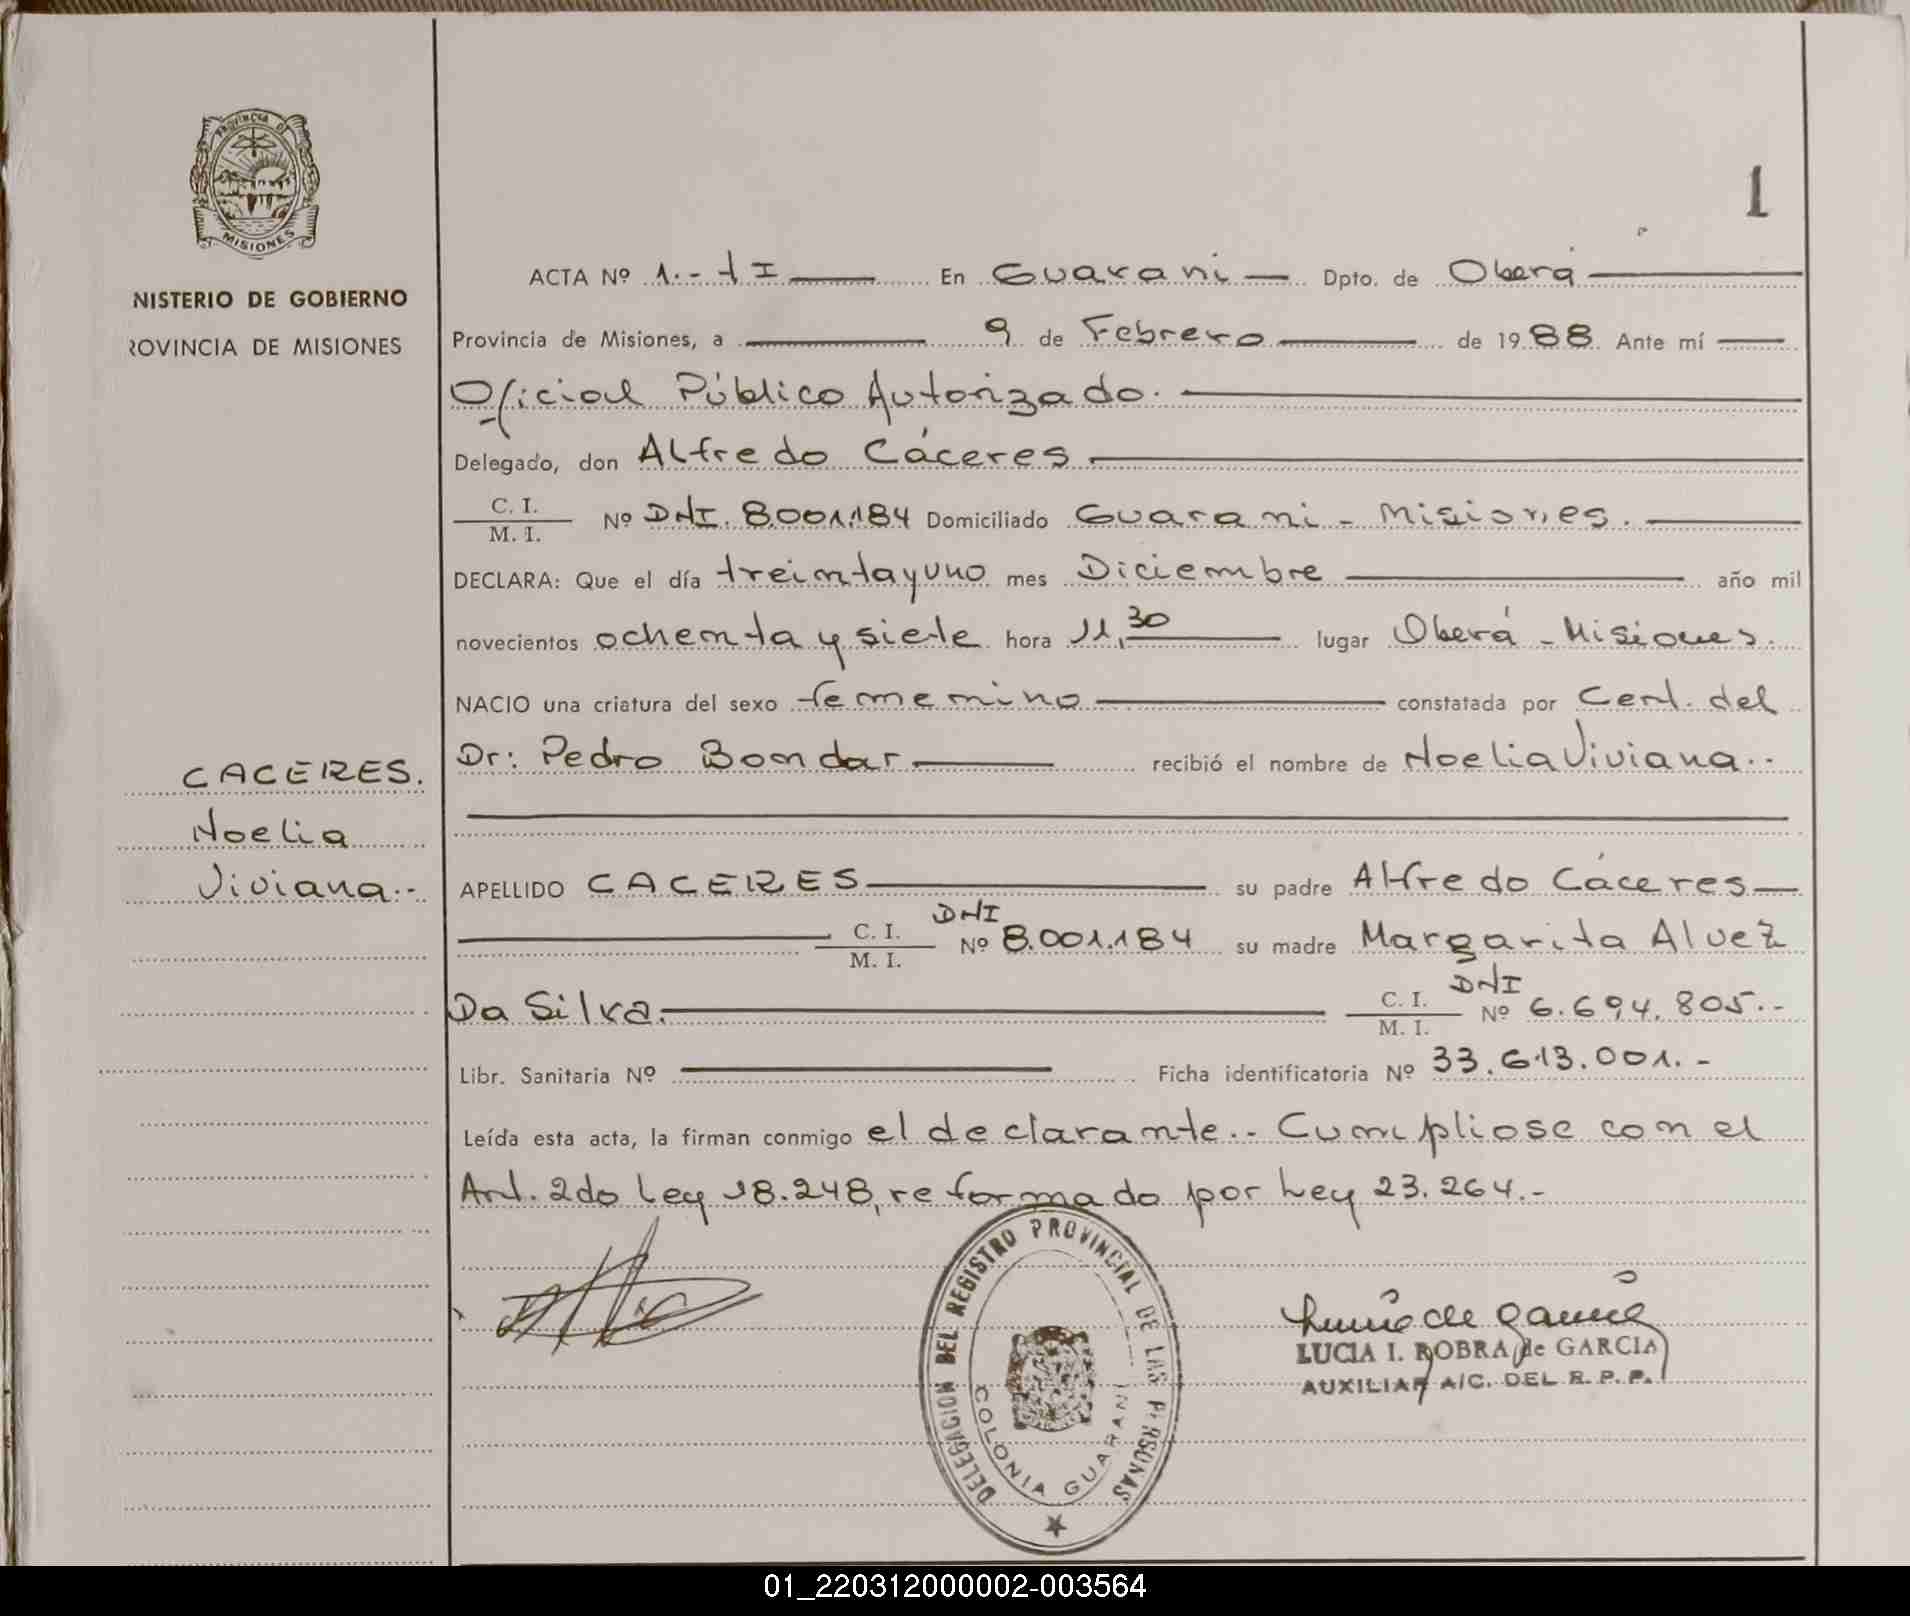 PROVINCIA DE
MISIONES
NISTERIO DE GOBIERNO
ROVINCIA DE MISIONES
1
ACTA Nº 1.- tI En Guaraní Dpto. de Oberá
Provincia de Misiones, a 9 de Febrero de 1988 Ante mí
Oficial Público Autorizado.
Delegado, don Alfredo Cáceres
C. I.
M. I. Nº DNI. 8.001.184 Domiciliado Guaraní - Misiones.
DECLARA: Que el día treintayuno mes Diciembre año mil
novecientos ochenta y siete hora 11,30 lugar Oberá - Misiones.
NACIO una criatura del sexo femenino constatada por Cert. del
Dr: Pedro Bondar recibió el nombre de Noelia Viviana.-
CACERES.
Noelia
Viviana.-
APELLIDO CACERES su padre Alfredo Cáceres
C. I.
M. I. DNI Nº 8.001.184 su madre Margarita Alvez
Da Silva. C. I.
M. I. DNI Nº 6.694.805.-
Libr. Sanitaria Nº Ficha identificatoria Nº 33.613.001.-
Leída esta acta, la firman conmigo el declarante.- Cumpliose con el
Art. 2do Ley 18.248, reformado por Ley 23.264.-
DELEGACION DEL REGISTRO PROVINCIAL DE LAS PERSONAS
COLONIA GUARANI
LUCIA I. ROBRA de GARCIA
AUXILIAR A/C. DEL R. P. P.
01_220312000002-003564